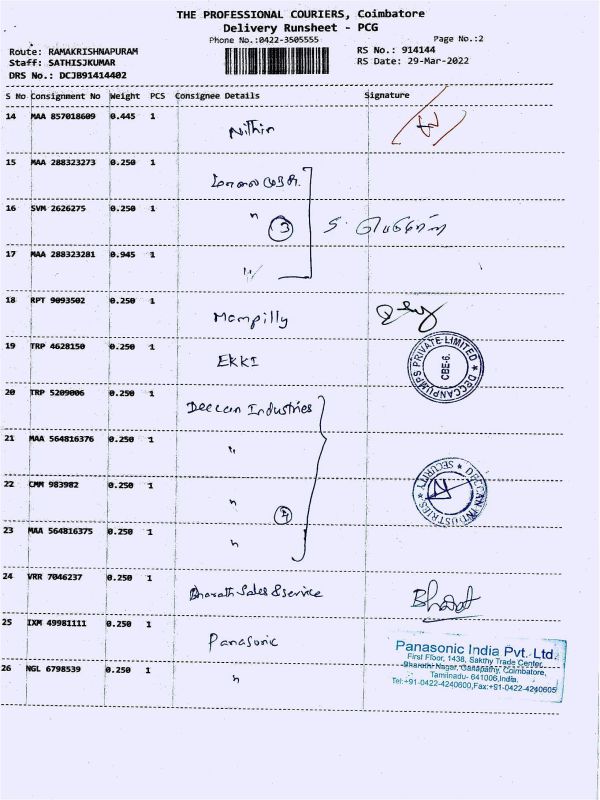 THE PROFESSIONAL COURIERS, Coimbatore
Delivery Runsheet - PCG
Phone No.:0422-3505555
Page No.:2
Route: RAMAKRISHNAPURAM
RS No.: 914144
Staff: SATHISJKUMAR
RS Date: 29-Mar-2022
DRS No.: DCJB91414402
S No Consignment No Weight PCS Consignee Details Signature
14 MAA 857018609 0.445 1 Nithin
15 MAA 288323273 0.250 1
16 SVM 2626275 0.250 1 "
3
17 MAA 288323281 0.945 1 "
18 RPT 9093502 0.250 1 Mampilly
19 TRP 4628150 0.250 1 EKKI
DECCANPUMPS PRIVATE LIMITED
CBE-6.
20 TRP 5209006 0.250 1 Deccan Industries
21 MAA 564816376 0.250 1 "
22 CMM 983982 0.250 1 "
4
DECCAN INDUSTRIES
SECURITY
23 MAA 564816375 0.250 1 "
24 VRR 7046237 0.250 1 Bharath Sales & service Bharat
25 IXM 49981111 0.250 1 Panasonic
26 NGL 6798539 0.250 1 "
Panasonic India Pvt. Ltd.
First Floor, 1438, Sakthy Trade Center,
Bharathi Nagar, Ganapathy, Coimbatore,
Tamilnadu- 641006,India.
Tel:+91-0422-4240600,Fax:+91-0422-4240605